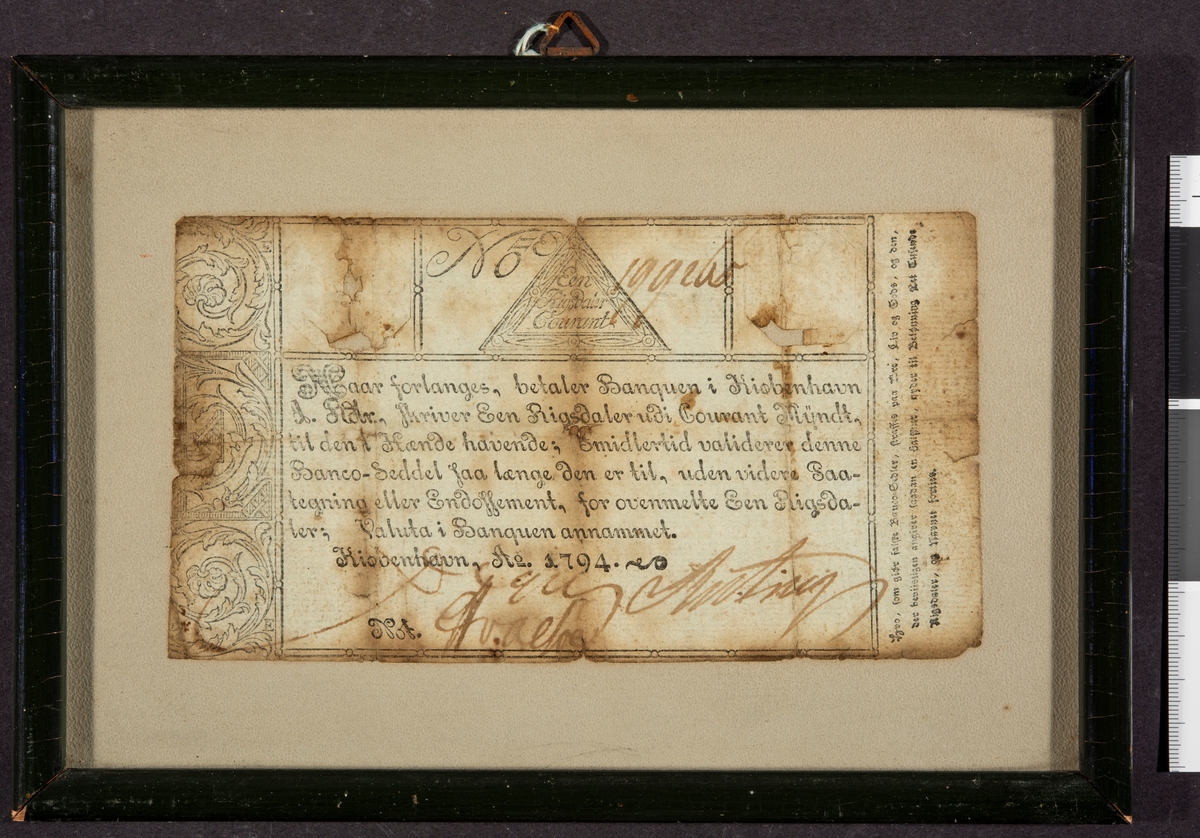 No
Een
Rigsdaler
Courant
Naar forlanges, betaler Banquen i Kiøbenhavn
1. Rdlr., skriver Een Rigsdaler udi Courant Mÿndt,
til den i Hænde havende; Imidlertid validerer denne
Banco-Seddel saa længe den er til, uden videre Paa-
tegning eller Endossement, for ovenmelte Een Rigsda-
ler; Valuta i Banquen annammet.
Kiøbenhavn, Ao. 1794.
Nt.
som giøre falske Banco-Sedler, straffes paa Ære, Liv og Gods, og den,
der beviisligen angiver saadan en Hiin, nyder til Belønning Tusinde
Rigsdaler, og Navnet forties.